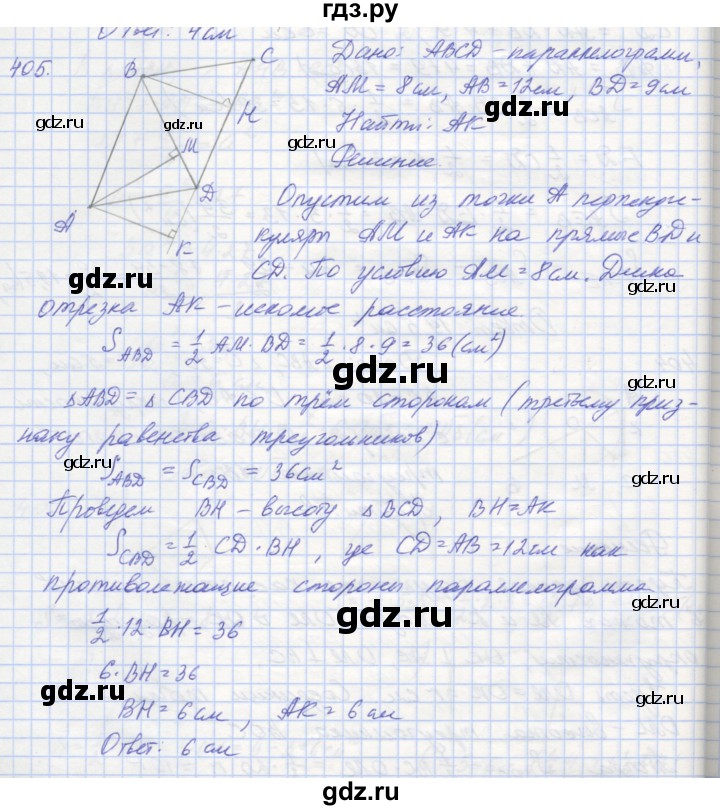 гдз.ру
Ответ: 4см
405. В С Дано: ABCD - параллелограмм,
AM = 8см, AB = 12см, BD = 9см
gdz.ru gdz.ru Н gdz.ru
Найти: AK
gdz.ru
М Решение.
D Опустим из точки А перпенди-
А куляры AM и AK на прямые BD и
К gdz.ru
CD. По условию AM = 8см. Длина
gdz.ru gdz.ru
отрезка AK - искомое расстояние.
S ABD = 1/2 AM · BD = 1/2 · 8 · 9 = 36 (см²)
gdz.ru gdz.ru
△ABD = △CBD по трём сторонам (третьему приз-
наку равенства треугольников)
gdz.ru
S ABD = S CBD = 36см²
gdz.ru
Проведем BH - высоту △BCD, BH = AK
gdz.ru
S CBD = 1/2 · CD · BH, где CD = AB = 12см как
противолежащие стороны параллелограмма
gdz.ru
1/2 · 12 · BH = 36
gdz.ru
6 · BH = 36
gdz.ru gdz.ru
BH = 6см, AK = 6см
Ответ: 6см
gdz.ru
gdz.ru